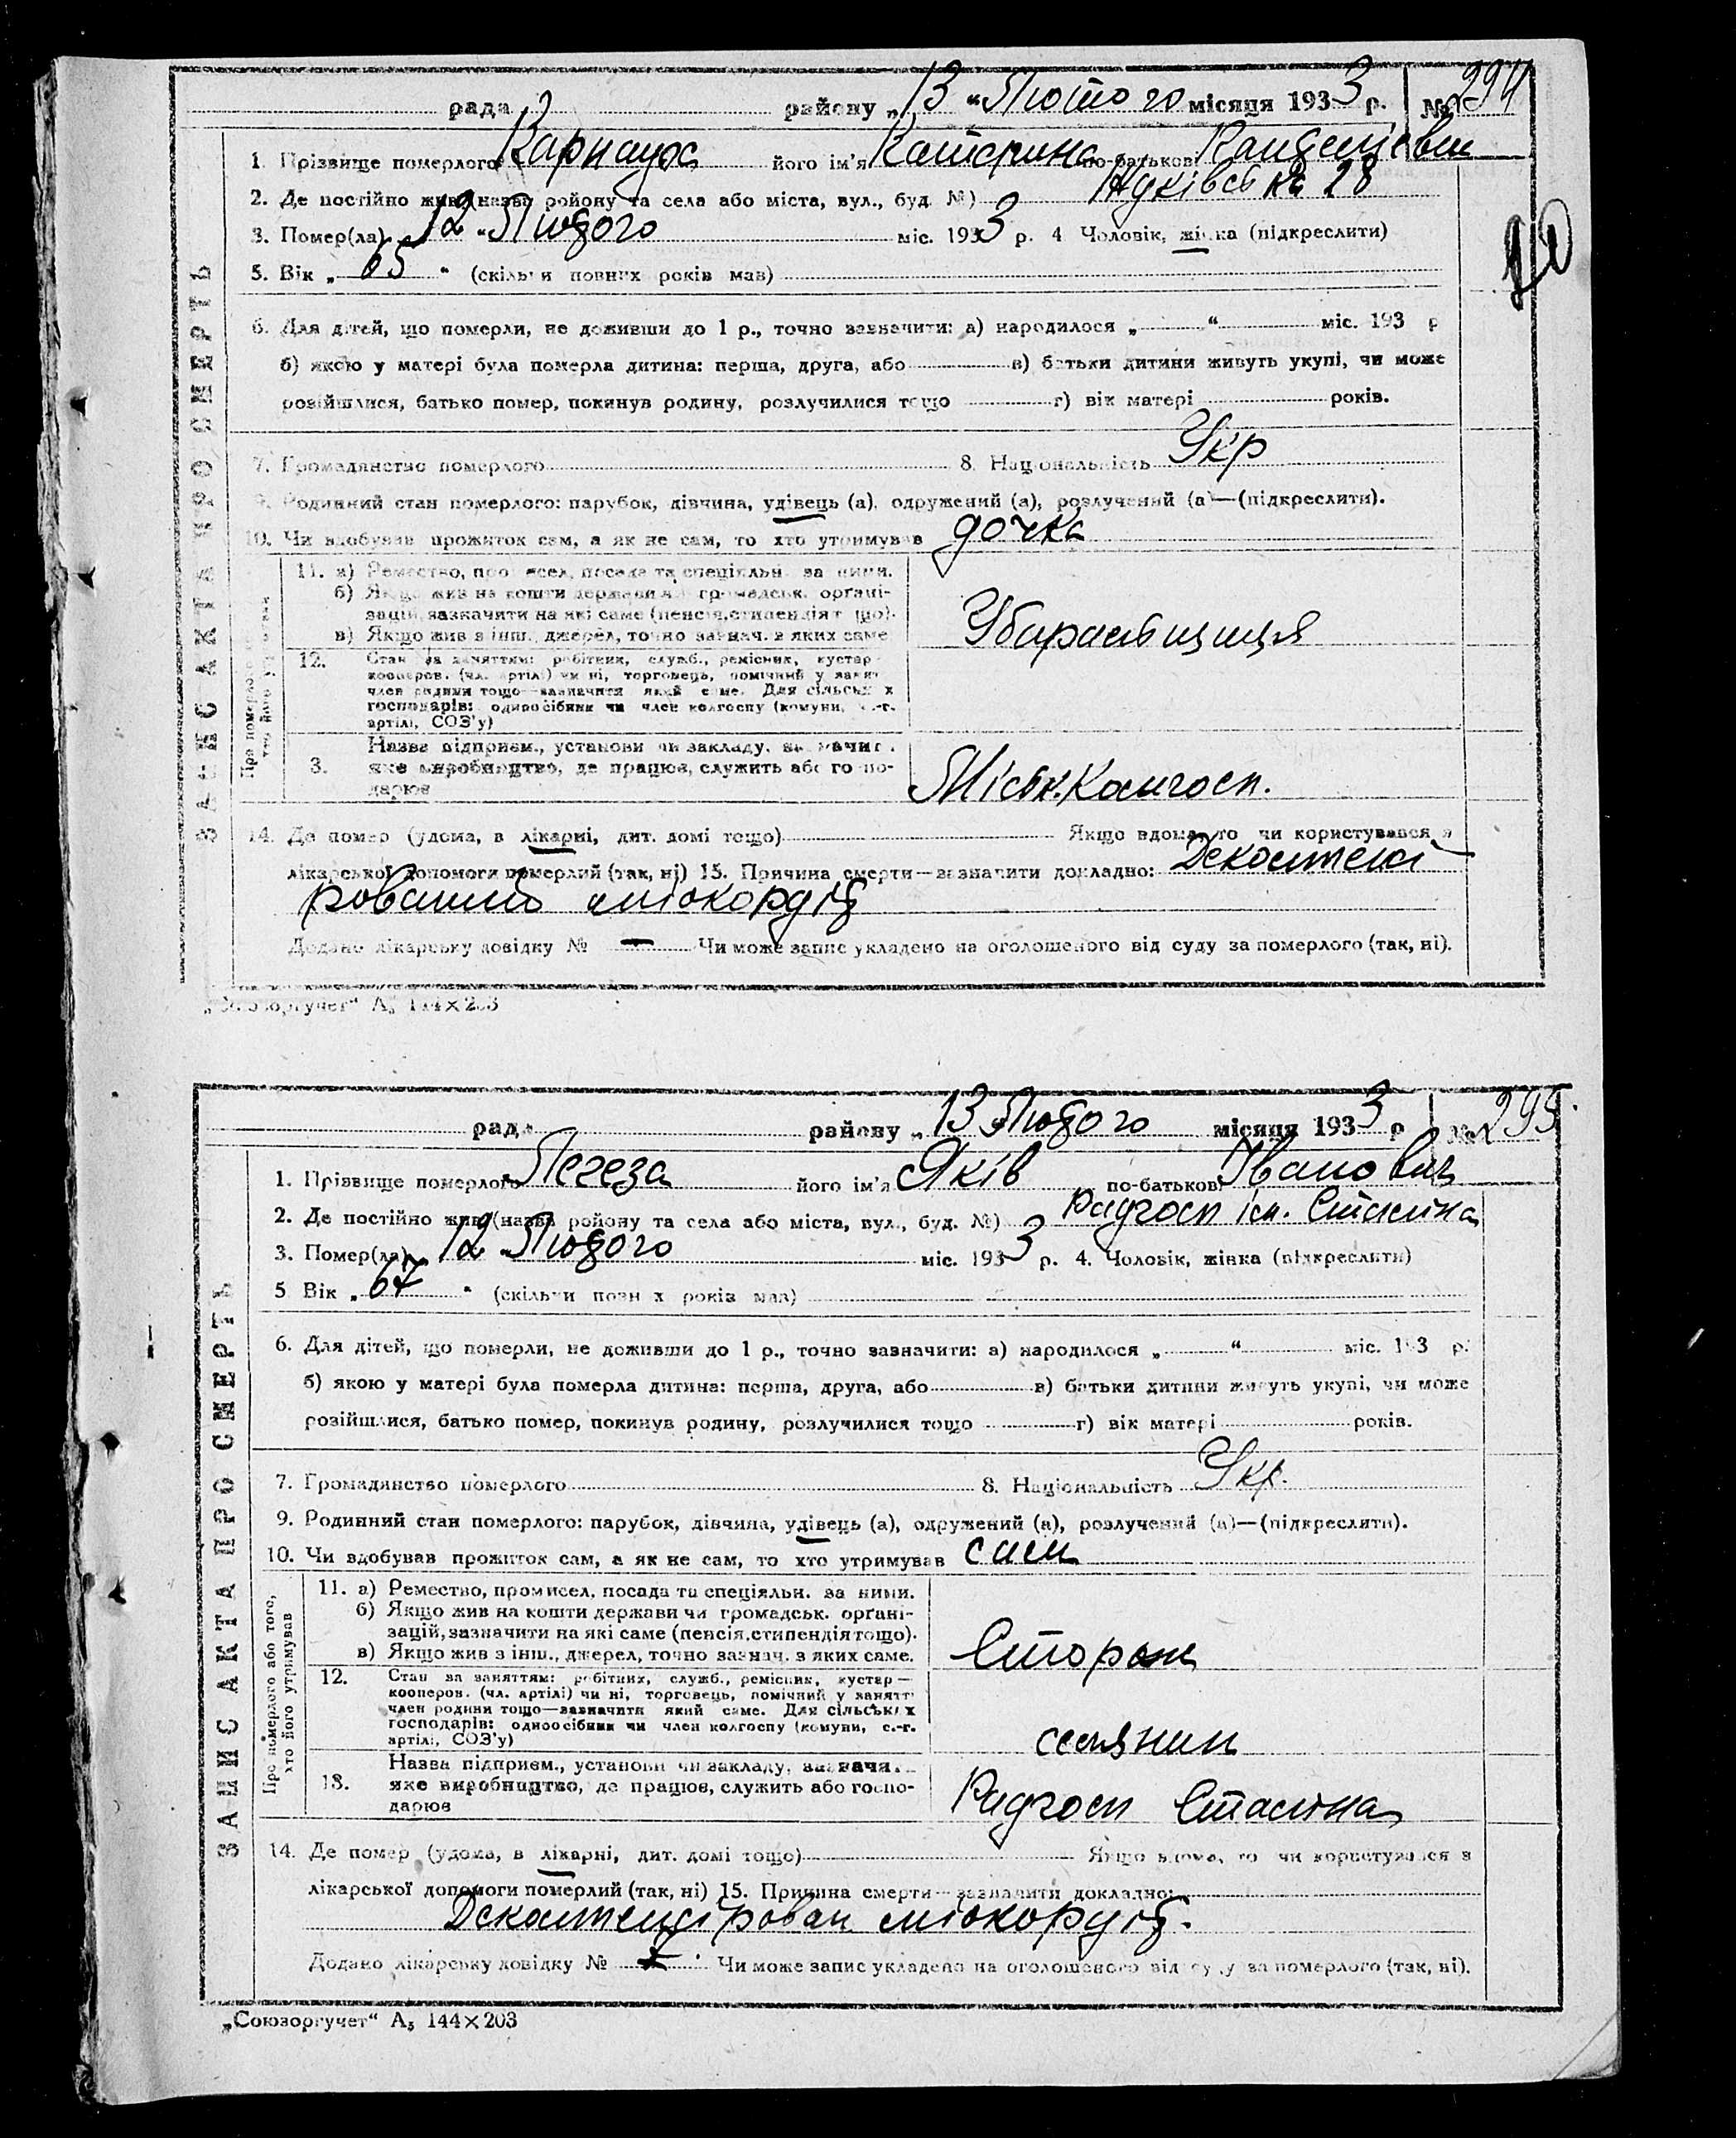 рада району „13 "Лютого місяця 1933 р. № 294
1. Прізвище померлого Карнаух його ім'я Катерина по-батькові
2. Де постійно жив (назва району та села або міста, вул., буд. №) 28
3. Помер(ла) 12 „Лютого міс. 1933 р. 4 Чоловік, жінка (підкреслити)
20
5. Вік „ 65 " (скільки повних років мав)
6. Для дітей, що померли, не доживши до 1 р., точно зазначити: а) народилося „ “ міс. 193 р
б) якою у матері була померла дитина: перша, друга, або в) батьки дитини живуть укупі, чи може
розійшлися, батько помер, покинув родину, розлучилися тощо г) вік матері років.
7. Громадянство померлого 8. Національність Укр
9. Родинний стан померлого: парубок, дівчина, удівець (а), одружений (а), розлучений (а)—(підкреслити).
10. Чи здобував прожиток сам, а як не сам, то хто утримував дочка
11. а) Ремество, промисел, посада та спеціяльн. за ними.
б) Якщо жив на кошти держави чи громадськ. орґані-
зацій, зазначити на які саме (пенсія, стипендія тощо).
в) Якщо жив з інш. джерел, точно зазнач. з яких саме
12. Стан за заняттям: робітник, служб., ремісник, кустар
кооперов. (чл. артілі) чи ні, торговець, помічний у занят
член родини тощо—зазначити який саме. Для сільськ х
господарів: одноосібник чи член колгоспу (комуни, с.-г.
артілі, СОЗ'у)
Назва підприєм., установи чи закладу, зазначит.
3. яке виробництво, де працює, служить або госпо-
дарює
Міськ. Комгосп.
14. Де помер (удома, в лікарні, дит. домі тощо) Якщо вдома, то чи користувався з
лікарської допомоги померлий (так, ні) 15. Причина смерти—зазначити докладно: Декомпенсі
рований міокардіт
Додано лікарську довідку № — Чи може запис укладено на оголошеного від суду за померлого (так, ні).
ЗАПИС АКТА ПРО СМЕРТЬ
„Союзоргучет“ А₅ 144×203
рада району „ 13 „Лютого місяця 1933 р № 295.
1. Прізвище померлого Легеза його ім'я Яків по-батькові Іванович
2. Де постійно жив (назва району та села або міста, вул., буд. №) Радгосп ім. Сталіна
3. Помер(ла) 12 „Лютого міс. 1933 р. 4. Чоловік, жінка (підкреслити)
5 Вік „ 67 " (скільки повн х років мав)
6. Для дітей, що померли, не доживши до 1 р., точно зазначити: а) народилося „ “ міс. 193 р.
б) якою у матері була померла дитина: перша, друга, або в) батьки дитини живуть укупі, чи може
розійшлися, батько помер, покинув родину, розлучилися тощо г) вік матері років.
7. Громадянство померлого 8. Національність Укр.
9. Родинний стан померлого: парубок, дівчина, удівець (а), одружений (а), розлучений (а)—(підкреслити).
10. Чи здобував прожиток сам, а як не сам, то хто утримував сам
Про померлого або того,
хто його утримував
11. а) Ремество, промисел, посада та спеціяльн. за ними.
б) Якщо жив на кошти держави чи громадськ. орґані-
зацій, зазначити на які саме (пенсія, стипендія тощо).
в) Якщо жив з інш., джерел, точно зазнач. з яких саме.
Сторож
12. Стан за заняттям: робітник, служб., ремісник, кустар—
кооперов. (чл. артілі) чи ні, торговець, помічний у занятт
член родини тощо—зазначити який саме. Для сільськ х
господарів: одноосібник чи член колгоспу (комуни, с.-г.
артілі, СОЗ'у)
селянин
Назва підприєм., установи чи закладу, зазначи.
13. яке виробництво, де працює, служить або госпо-
дарює
Радгосп Сталіна
14. Де помер (удома, в лікарні, дит. домі тощо) Якщо вдома, то чи користувався з
лікарської допомоги померлий (так, ні) 15. Причина смерти—зазначити докладно:
Декомпенсірован міокордіт.
Додано лікарську довідку № Чи може запис укладено на оголошеного від суду за померлого (так, ні).
ЗАПИС АКТА ПРО СМЕРТЬ
„Союзоргучет“ А₅ 144×203